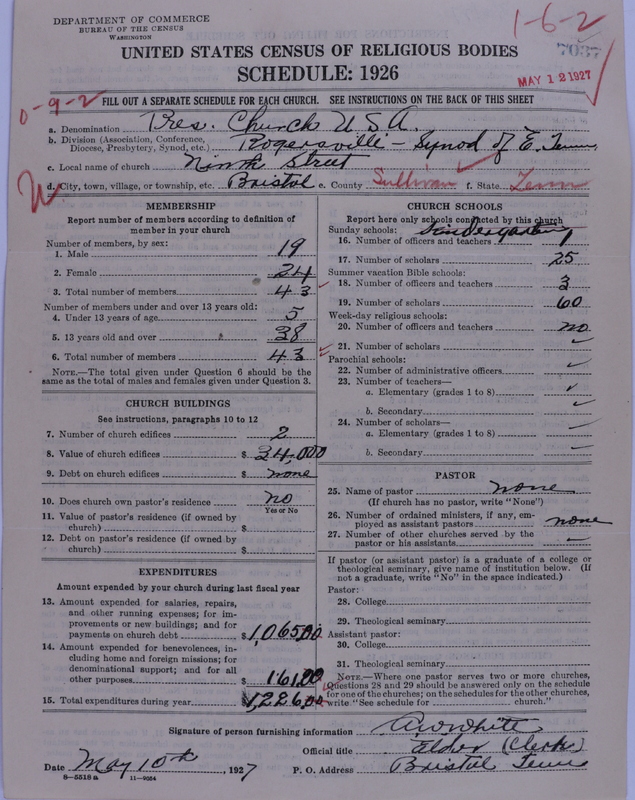 DEPARTMENT OF COMMERCE
BUREAU OF THE CENSUS
WASHINGTON
1-6-2
7037
UNITED STATES CENSUS OF RELIGIOUS BODIES
SCHEDULE: 1926
MAY 12 1927
0-9-2
FILL OUT A SEPARATE SCHEDULE FOR EACH CHURCH. SEE INSTRUCTIONS ON THE BACK OF THIS SHEET
a. Denomination Pres. Church U.S.A.
b. Division (Association, Conference, Diocese, Presbytery, Synod, etc.) Rogersville - Synod of E. Tenn.
c. Local name of church Ninth Street
d. City, town, village, or township, etc. Bristol e. County Sullivan f. State Tenn
MEMBERSHIP
Report number of members according to definition of
member in your church
Number of members, by sex:
1. Male 19
2. Female 24
3. Total number of members 43
Number of members under and over 13 years old:
4. Under 13 years of age 5
5. 13 years old and over 38
6. Total number of members 43
NOTE.—The total given under Question 6 should be the
same as the total of males and females given under Question 3.
CHURCH BUILDINGS
See instructions, paragraphs 10 to 12
7. Number of church edifices 2
8. Value of church edifices $ 34,000
9. Debt on church edifices $ none
10. Does church own pastor's residence no
Yes or No
11. Value of pastor's residence (if owned by
church) $
12. Debt on pastor's residence (if owned by
church) $
EXPENDITURES
Amount expended by your church during last fiscal year
13. Amount expended for salaries, repairs,
and other running expenses; for im-
provements or new buildings; and for
payments on church debt $ 1,065.00
14. Amount expended for benevolences, in-
cluding home and foreign missions; for
denominational support; and for all
other purposes $ 161.00
15. Total expenditures during year $ 1,226.00
CHURCH SCHOOLS
Report here only schools conducted by this church
Sunday schools: Kindergarten
16. Number of officers and teachers 1
17. Number of scholars 25
Summer vacation Bible schools:
18. Number of officers and teachers 3
19. Number of scholars 60
Week-day religious schools:
20. Number of officers and teachers no
21. Number of scholars
Parochial schools:
22. Number of administrative officers
23. Number of teachers—
a. Elementary (grades 1 to 8)
b. Secondary
24. Number of scholars—
a. Elementary (grades 1 to 8)
b. Secondary
PASTOR
25. Name of pastor none
(If church has no pastor, write "None")
26. Number of ordained ministers, if any, em-
ployed as assistant pastors none
27. Number of other churches served by the
pastor or his assistants
If pastor (or assistant pastor) is a graduate of a college or
theological seminary, give name of institution below. (If
not a graduate, write "No" in the space indicated.)
Pastor:
28. College
29. Theological seminary
Assistant pastor:
30. College
31. Theological seminary
NOTE.—Where one pastor serves two or more churches,
Questions 28 and 29 should be answered only on the schedule
for one of the churches; on the schedules for the other churches,
write "See schedule for church."
Signature of person furnishing information White
Official title Elder (Clerk)
Date May 10th, 1927 P. O. Address Bristol Tenn
8—5518 a 11—9554